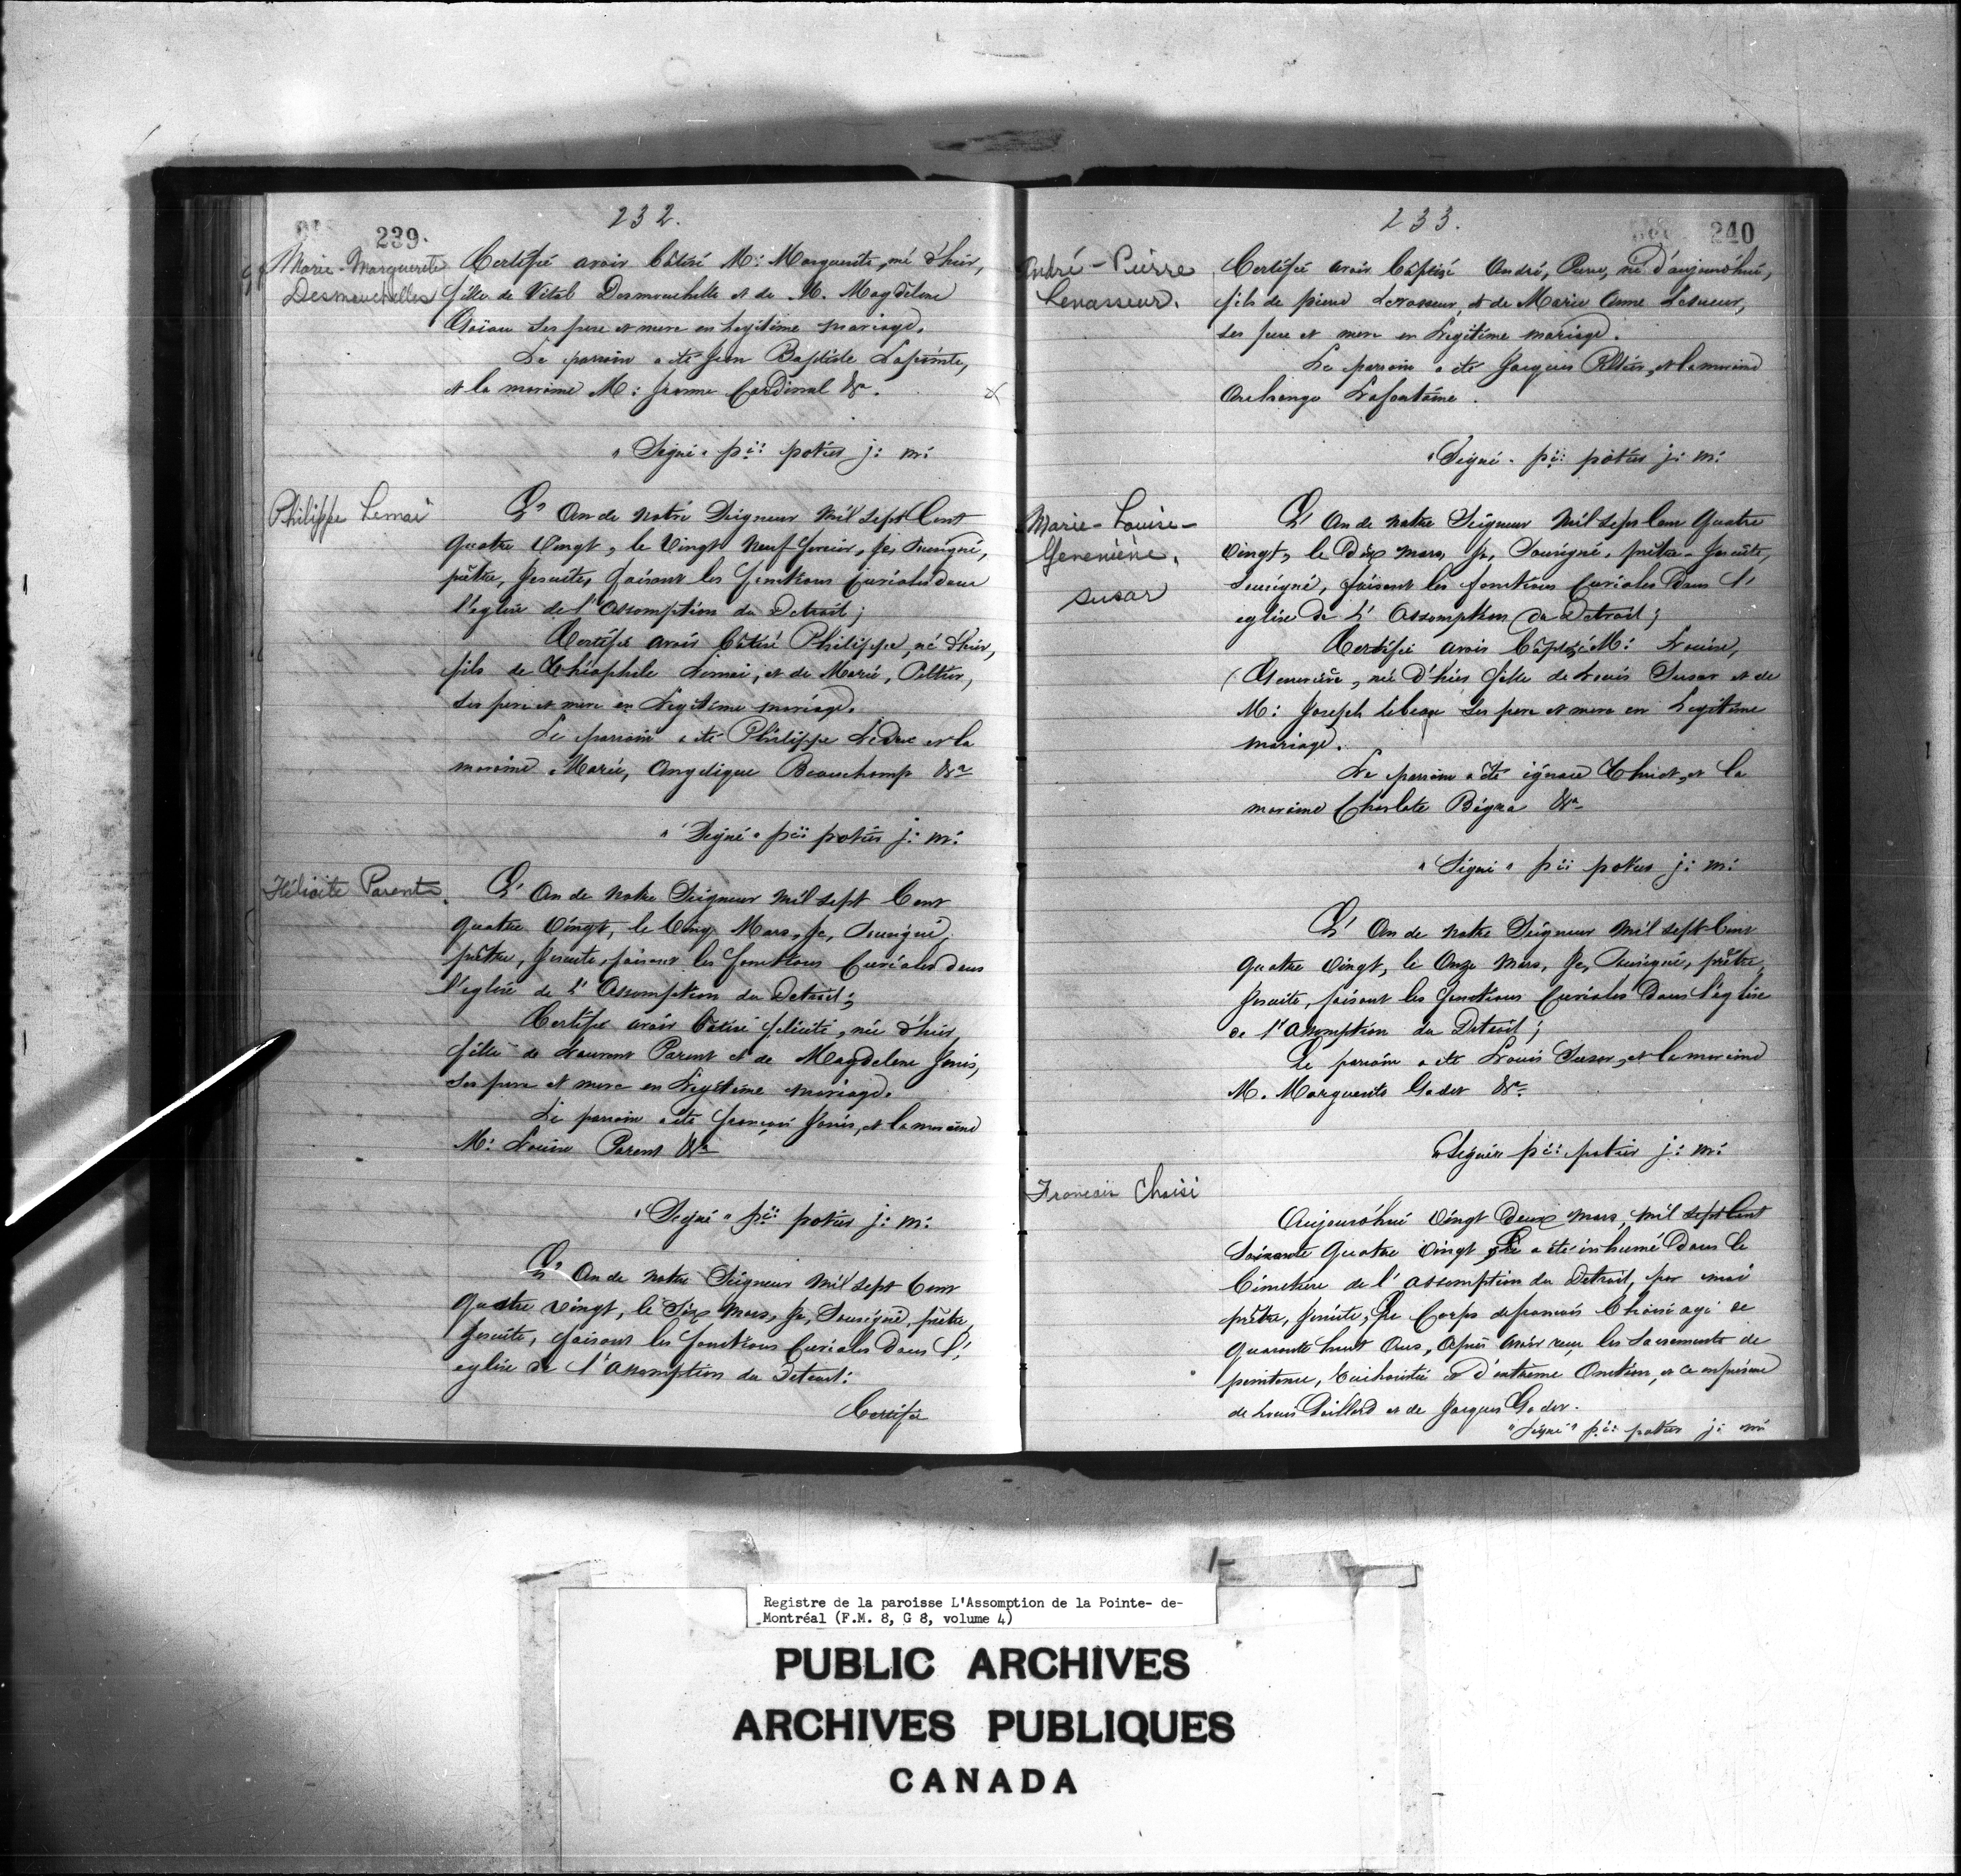 232.
239.
Marie-Marguerite
Desmouchelles
Certifié avoir bâtisé M: Marguerite, né d'hier,
fille de Vital Desmouchelle et de M. Magdelene
ses pere et mere en legitime mariage.
Le parrain a été Jean Baptiste Lapointe,
et la maraine M: Jeanne Cardinal &a.
"Signé" p:: potier j: m:
Philippe Lemai
L'An de Notre Seigneur Mil Sept Cent
Quatre Vingt, le Vingt Neuf Janvier, Je, Sousigné,
prêtre, Jesuite, faisant les fonctions Curiales dans
l'eglise de l'Assomption du Detroit;
Certifié avoir bâtisé Philippe, né d'hier,
fils de Théophile Lemai, et de Marie, Peltier,
ses pere et mere en Legitime mariage.
Le parrain a été Philippe Leduc et la
maraine Marie, Angelique Beauchamp &a
"Signé" p:: potier j: m:
Félicite Parent.
L'An de Notre Seigneur Mil Sept Cent
Quatre Vingt, le Cinq Mars, Je, Sousigné,
prêtre, Jesuite, faisant les fonctions Curiales dans
l'eglise de L'Assomption du Detroit;
Certifié avoir bâtisé félicité, née d'hier,
fille de Laurent Parent et de Magdelene Janis,
ses pere et mere en Legitime mariage.
Le parrain a été françois Janis, et la maraine
M: Louise Parent &a
"Signé" p:: potier j: m:
L'An de Notre Seigneur Mil Sept Cent
Quatre Vingt, le Six Mars, Je, Sousigné, prêtre,
Jesuite, faisant les fonctions Curiales dans l'
eglise de l'Assomption du Detroit:
Certifié
233.
240
André-Pierre
Levasseur.
Certifié avoir bâptisé André, Pierre, né d'aujourd'hui,
fils de pierre Levasseur, et de Marie Anne Lesueur,
ses pere et mere en Legitime mariage.
Le parrain a été Jacques Peltier, et la maraine
Archange Lafontaine.
"Signé" p:: potier j: m:
Marie-Louise-
Genevieve.
Susor
L'An de Notre Seigneur Mil Sept Cent Quatre
Vingt, le Dix Mars, Je, Sousigné, prêtre-Jesuite,
Sousigné, faisant les fonctions Curiales dans l'
eglise de L'Assomption du Detroit;
Certifié avoir bâptisé M: Louise,
Genevieve, née d'hier fille de Louis Susor et de
M: Joseph Lebeau ses pere et mere en Legitime
mariage.
Le parrain a été ignace et la
maraine Charlote &a
"Signé" p:: potier j: m:
L'An de Notre Seigneur Mil Sept Cent
Quatre Vingt, le Onze Mars, Je, Sousigné, prêtre,
Jesuite, faisant les fonctions Curiales dans l'église
de l'Assomption du Detroit;
Le parrain a été Louis Susor, et la maraine
M. Marguerite Godet &a
"Signé" p:: potier j: m:
Francois Choisi
Aujourd'hui Vingt Deux Mars, Mil Sept Cent
Soixante Quatre Vingt, a été inhumé Dans le
Cimetiere de l'Assomption du Detroit, par moi
prêtre, Jesuite, Le Corps de francois Choisi agé de
Quarante huit Ans, Après avoir reçu les Sacrements de
penitence, Euchaistie et d'extrême Onction, et Ce en présence
de Louis et de Jacques Godet.
"Signé" p:: potier j: m:
Registre de la paroisse L'Assomption de la Pointe- de-
Montréal (F.M. 8, G 8, volume 4)
PUBLIC ARCHIVES
ARCHIVES PUBLIQUES
CANADA